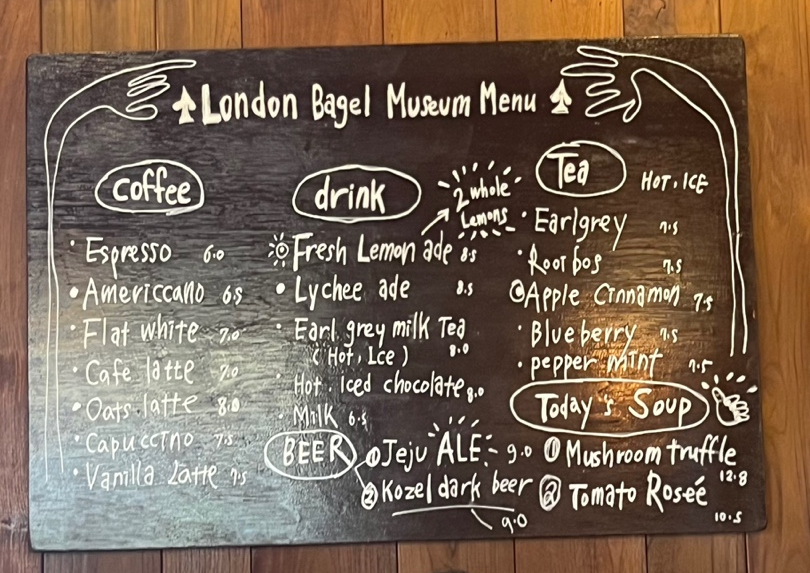 London Bagel Museum Menu
coffee
Espresso 6.0
Americcano 6.5
Flat white 7.0
Cafe latte 7.0
Oats latte 8.0
Capuccino 7.5
Vanilla Latte 7.5
drink
2 whole
Lemons
Fresh Lemon ade 8.5
Lychee ade 8.5
Earl grey milk Tea
(Hot, Ice) 8.0
Hot. Iced chocolate 8.0
Milk 6.5
BEER
① Jeju ALE 9.0
② Kozel dark beer
9.0
Tea HOT, ICE
Earlgrey 7.5
Rooibos 7.5
Apple Cinnamon 7.5
Blueberry 7.5
pepper mint 7.5
Today's Soup
① Mushroom truffle
12.8
② Tomato Roseé
10.5